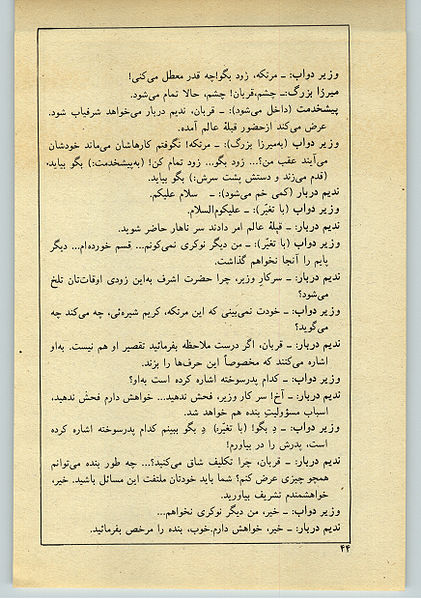 وزیر دواب: ـ مرتکه، زود بگو!چه قدر معطل می‌کنی!
میرزا بزرگ:ـ چشم،قربان! چشم، حالا تمام می‌شود.
پیشخدمت (داخل می‌شود): ـ قربان، ندیم دربار می‌خواهد شرفیاب شود.
عرض می‌کند ازحضور قبلهٔ عالم آمده.
وزیر دواب (به‌میرزا بزرگ): ـ مرتکه! نگوفتم کارهاشان می‌ماند خودشان
می‌آیند عقب من؟... زود بگو... زود تمام کن! (به‌پیشخدمت:) بگو بیاید.
(قدم می‌زند و دستش پشت سرش:) بگو بیاید.
ندیم دربار (کمی خم می‌شود): ـ سلام علیکم.
وزیر دواب (با تغیّر): ـ علیکوم‌السلام.
ندیم دربار: ـ قبلهٔ عالم امر دادند سر ناهار حاضر شوید.
وزیر دواب (با تغیّر): ـ من دیگر نوکری نمی‌کونم... قسم خورده‌ام... دیگر
پایم را آنجا نخواهم گذاشت.
ندیم دربار: ـ سرکار وزیر، چرا حضرت اشرف به‌این زودی اوقات‌تان تلخ
می‌شود؟
وزیر دواب: ـ خودت نمی‌بینی که این مرتکه، کریم شیره‌ئی، چه می‌کند چه
می‌گوید؟
ندیم دربار: ـ قربان، اگر درست ملاحظه بفرمائید تقصیر او هم نیست. به‌او
اشاره می‌کنند که مخصوصاً این حرف‌ها را بزند.
وزیر دواب: ـ کدام پدرسوخته اشاره کرده است به‌او؟
ندیم دربار: ـ آخ! سر کار وزیر، فحش ندهید... خواهش دارم فحش ندهید،
اسباب مسؤولیتِ بنده هم خواهد شد.
وزیر دواب: ـ دِ بگو! (با تغیّر:) دِ بگو ببینم کدام پدرسوخته اشاره کرده
است، پدرش را در بیاورم!
ندیم دربار: ـ قربان، چرا تکلیف شاق می‌کنید؟... چه طور بنده می‌توانم
همچو چیزی عرض کنم؟ شما باید خودتان ملتفت این مسائل باشید. خیر،
خواهشمندم تشریف بیاورید.
وزیر دواب: ـ خیر، من دیگر نوکری نخواهم...
ندیم دربار: ـ خیر، خواهش دارم.خوب، بنده را مرخص بفرمائید.
۴۴